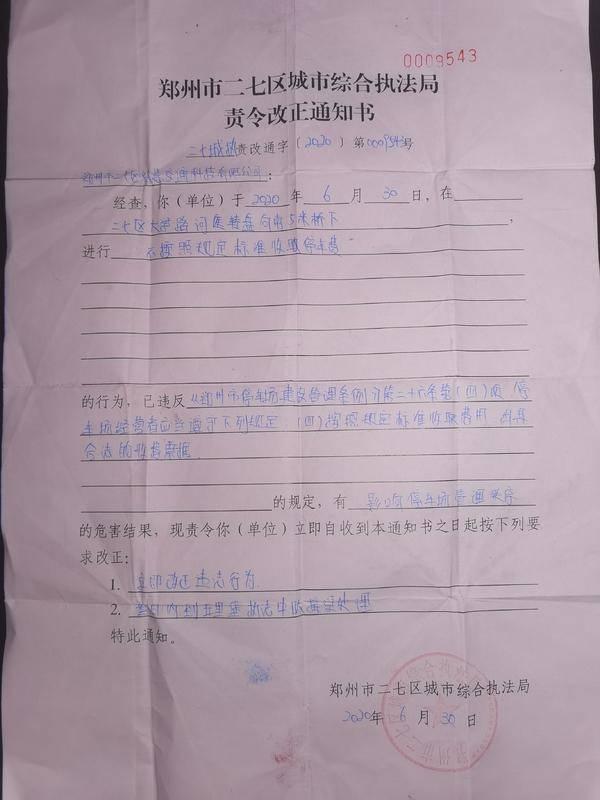 0009543
郑州市二七区城市综合执法局
责令改正通知书
二七城执责改通字〔2020〕第0009543号
郑州市二七区 通科技有限公司：
经查，你（单位）于2020年6月30日，在
二七区大学路 向南5米桥下，
进行 不按照规定标准收取停车费
的行为，已违反《郑州市停车场建设管理条例》第二十六条第（四）项 停
车场经营者应当遵守下列规定：（四）按照规定标准收取费用 出具
合法的收费票据
的规定，有 影响停车场管理秩序
的危害结果，现责令你（单位）立即自收到本通知书之日起按下列要
求改正：
1. 立即改正违法行为
2. 日内到五里堡执法中队接受处理
特此通知。
郑州市二七区城市综合执法局
2020年6月30日